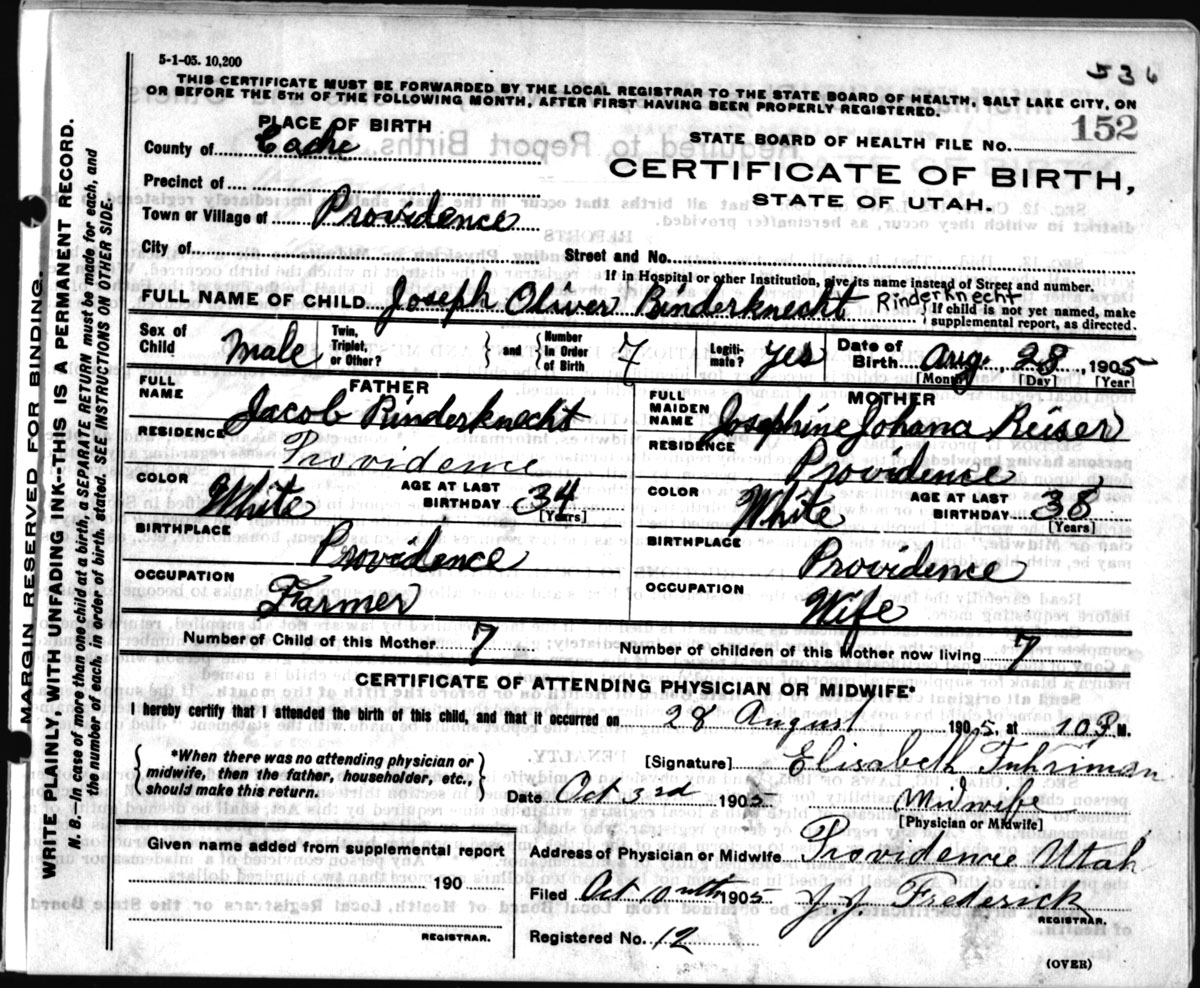 5-1-05. 10,200
536
THIS CERTIFICATE MUST BE FORWARDED BY THE LOCAL REGISTRAR TO THE STATE BOARD OF HEALTH, SALT LAKE CITY, ON
OR BEFORE THE 5TH OF THE FOLLOWING MONTH, AFTER FIRST HAVING BEEN PROPERLY REGISTERED.
PLACE OF BIRTH
STATE BOARD OF HEALTH FILE NO. 152
County of Cache
CERTIFICATE OF BIRTH,
Precinct of
STATE OF UTAH.
Town or Village of Providence
City of Street and No.
If in Hospital or other Institution, give its name instead of Street and number.
FULL NAME OF CHILD Joseph Oliver Binderknecht Rinderknecht { If child is not yet named, make
supplemental report, as directed.
Sex of Child Male Twin, Triplet, or Other? } and { Number In Order of Birth 7 Legiti- mate? Yes Date of Birth Aug. 28, 1905
[Month] [Day] [Year]
FATHER MOTHER
FULL NAME Jacob Rinderknecht FULL MAIDEN NAME Josephine Johana Reiser
RESIDENCE Providence RESIDENCE Providence
COLOR White AGE AT LAST BIRTHDAY 34 [Years] COLOR White AGE AT LAST BIRTHDAY 38 [Years]
BIRTHPLACE Providence BIRTHPLACE Providence
OCCUPATION Farmer OCCUPATION Wife
Number of Child of this Mother 7 Number of children of this Mother now living 7
CERTIFICATE OF ATTENDING PHYSICIAN OR MIDWIFE*
I hereby certify that I attended the birth of this child, and that it occurred on 28 August 1905, at 10 P M.
{ *When there was no attending physician or
midwife, then the father, householder, etc.,
should make this return. }
[Signature] Elisabeth Fuhriman
Date Oct 3rd 1905 Midwife
[Physician or Midwife]
Given name added from supplemental report
190
REGISTRAR.
Address of Physician or Midwife Providence Utah
Filed Oct 10th 1905 Frederick
REGISTRAR.
Registered No. 12
(OVER)
MARGIN RESERVED FOR BINDING.
WRITE PLAINLY, WITH UNFADING INK-THIS IS A PERMANENT RECORD.
N. B. In case of more than one child at a birth, a SEPARATE RETURN must be made for each, and
the number of each, in order of birth, stated. SEE INSTRUCTIONS ON OTHER SIDE.